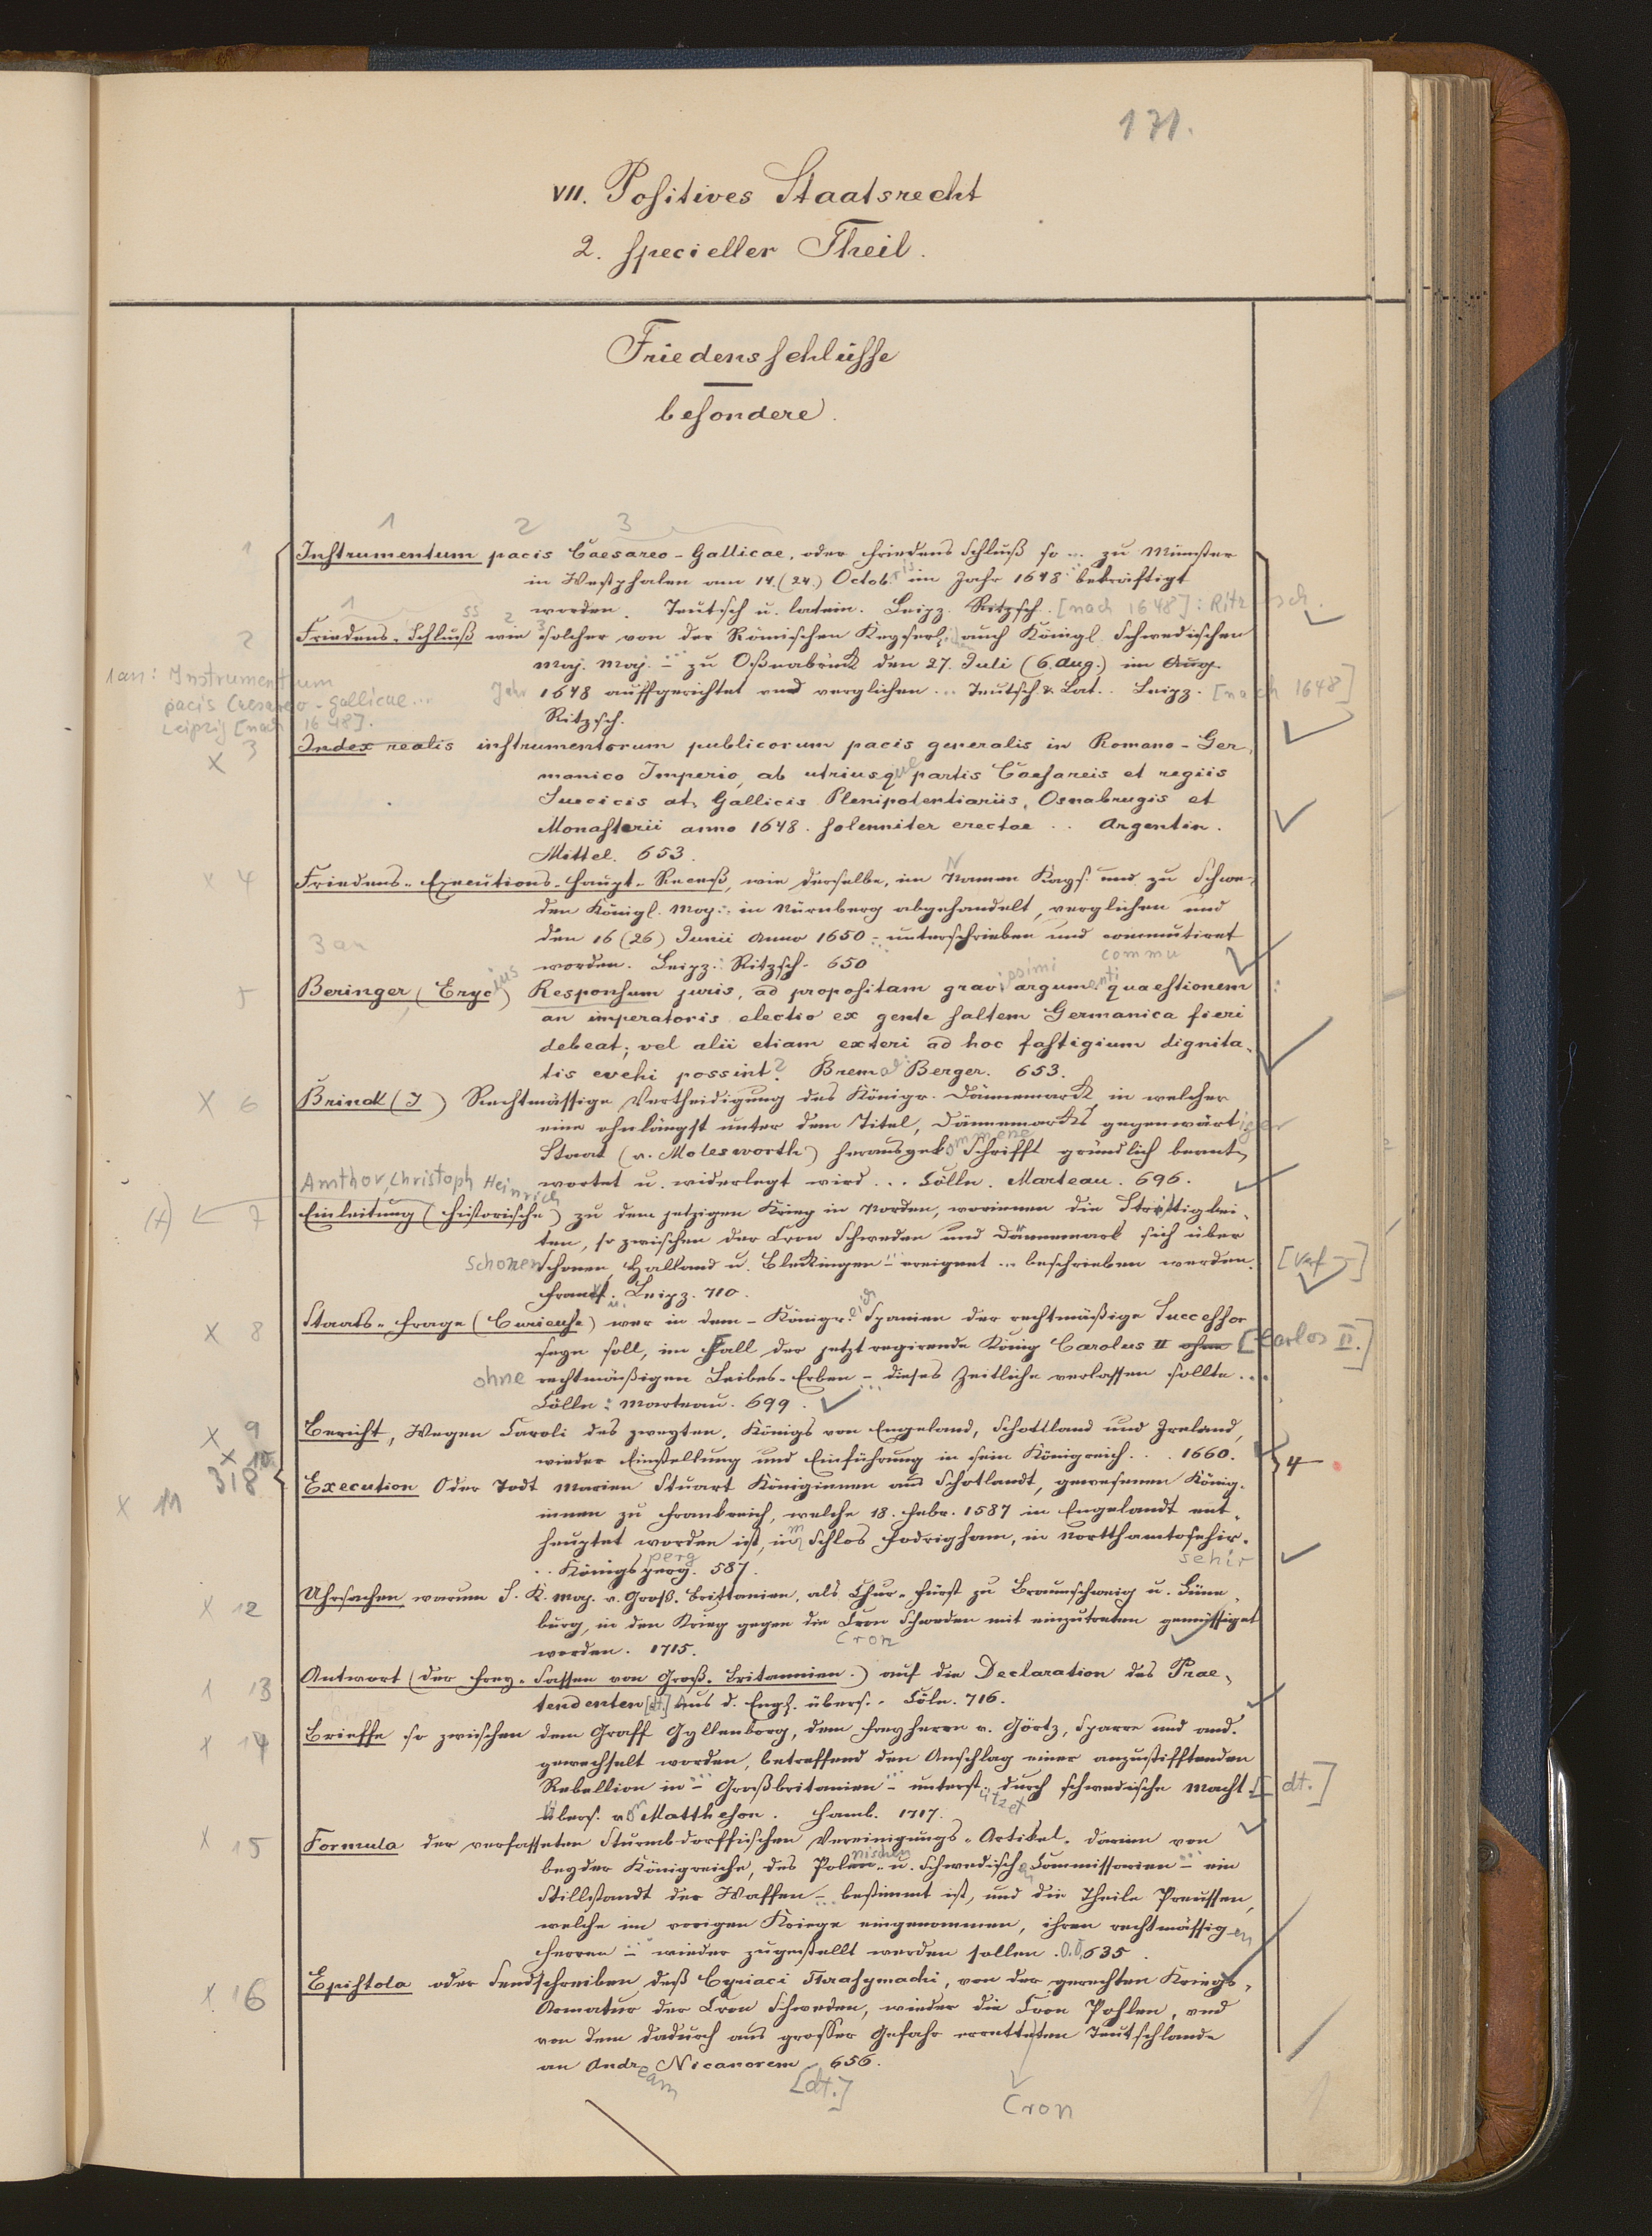 171.
VII. Positives Staatsrecht
2. specieller Theil.
Friedensschlüsse
besondere.
1 2 3
1 Instrumentum pacis Caesareo-Gallicae, oder Friedens Schluß so ... zu Münster
in Westphalen am 14. (24.) Octob.ris im Jahr 1648 ... bekräftigt
worden. Teutsch u. latein. Leipz. Ritzsch. [nach 1648]: Ritzsch.
1 ss 2 3
2 Friedens-Schluß wie solcher von der Römischen Keyserl. auch Königl. Schwedischen
Maj. Maj. ... zu Oßnabrück den 27. Juli (6. Aug.) im Aug.
1an: Instrumentum
pacis Caesareo-Gallicae...
Leipzig [nach 1648].
Jahr 1648 auffgerichtet und verglichen ... Teutsch & Lat. .. Leipz. [nach 1648]
Ritzsch.
x 3 Index realis instrumentorum publicorum pacis generalis in Romano-Ger-
manico Imperio, ab utriusque partis Caesareis et regiis
Suecicis atq Gallicis Plenipotentiariis, Osnabrugis et
Monasterii anno 1648. solenniter erectae .. Argentin.
Mittel. 653.
x 4 Friedens-Executions-Haupt-Receß, wie derselbe, im Namen Kays. und zu Schwe-
den Königl. Maj. ... in Nürnberg abgehandelt, verglichen und
den 16 (26) Junii Anno 1650 ... unterschrieben und commutiret
3 an
commu
worden. Leipz.: Ritzsch. 650
5 Beringer, (Erycius) Responsum juris, ad propositam gravissimi argumenti quaestionem
an imperatoris electio ex gente saltem Germanica fieri
debeat; vel alii etiam exteri ad hoc fastigium dignita-
tis evehi possint? Brem Berger. 653.
x 6 Brinck (J) Rechtmässige Vertheidigung des Königr. Dännemarck, in welcher
eine ohnlängst unter dem Titel, Dännemarcks gegenwärtiger
Staat (v. Molesworth) herausgekommene Schrifft gründlich beant-
wortet u. widerlegt wird ... Cölln. Marteau. 696.
Amthor, Christoph Heinrich
(x) 7 Einleitung (historische) zu dem jetzigen Krieg in Norden, worinnen die Streittigkei-
ten, so zwischen der Cron Schweden und Dännemark sich über
Schonen Schonen, Halland u. Bleckingen ... ereignet ... beschrieben werden. [Verf.]
Franckf. u. Leipz. 710.
x 8 Staats-Frage (Curieuse) wer in dem - Königreich Spanien der rechtmäßige Successor
seyn soll, im Fall der jetzt regirende König Carolus II ohne [Carlos II.]
ohne rechtmäßigen Leibes-Erben ... dieses Zeitliche verlassen sollte...
Cölln: Marteau. 699.
x 9 Bericht, Wegen Caroli des zweyten, Königs von Engeland, Schottland und Irrland,
x 10 wieder Einstellung und Einführung in sein Königreich . . . 1660. 4
318
x 11 Execution Oder Todt Marien Stuart Königinnen aus Schotlandt, gewesenen König-
innen zu Franckreich, welche 18. Febr. 1587 in Engelandt ent-
hauptet worden ist, im Schlos Fodrigham, in Nortthamtosehir.
perg sehir
.. Königsperg. 587.
x 12 Uhrsachen warum S. K. Maj. v. Groß-Brittanien, als Chur-Fürst zu Braunschweig u. Lüne-
burg, in den Krieg gegen die Cron Schweden mit einzutreten gemüssiget
Cron
worden. 1715.
1 13 Antwort (der Frey-Sassen von Groß-Britannien.) auf die Declaration des Prae-
tendenten [dt.] Aus d. Engl. übers. - Cöln. 716.
x 14 Brieffe so zwischen dem Graff Gyllenborg, dem Freyherrn v. Görtz, Sparre und and.
gewechselt worden, betreffend den Anschlag einer anzustifftenden
Rebellion in ... Großbritanien ... unterstützet durch schwedische Macht. [dt.]
Übers. v. Mattheson. Hamb. 1717.
x 15 Formula der verfasseten Sturmbdorffischen Vereinigungs-Artikel. darinn von
beyder Königreiche, des Polnischen u. Schwedischen Commissarien ... ein
Stillstandt der Waffen ... bestimmt ist, und die Theile Preussen,
welche im vorigen Kriege eingenommen, ihren rechtmässigen
Herren ... wieder zugestellt werden sollen. O.O. 635.
x 16 Epistola oder Sendschreiben deß Cyriaci Thrasymachi, von der gerechten Kriegs-
Armatur der Cron Schweden, wieder die Cron Pohlen, und
von dem dadurch aus grosser Gefahr erretteten Teutschlande
an Andream Nicanorem 656.
[dt.]
Cron